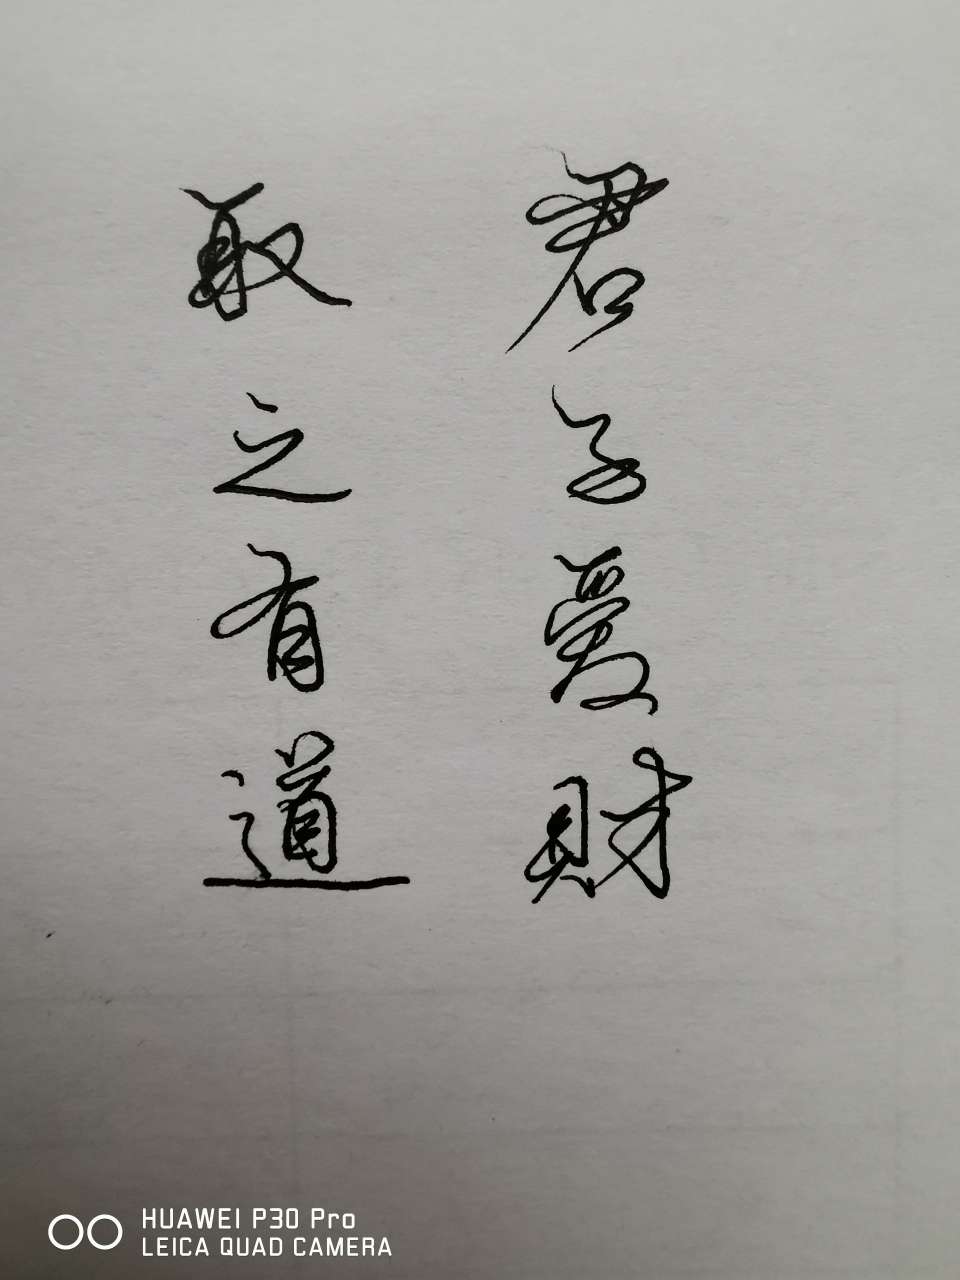 君子爱财
取之有道
HUAWEI P30 Pro
LEICA QUAD CAMERA